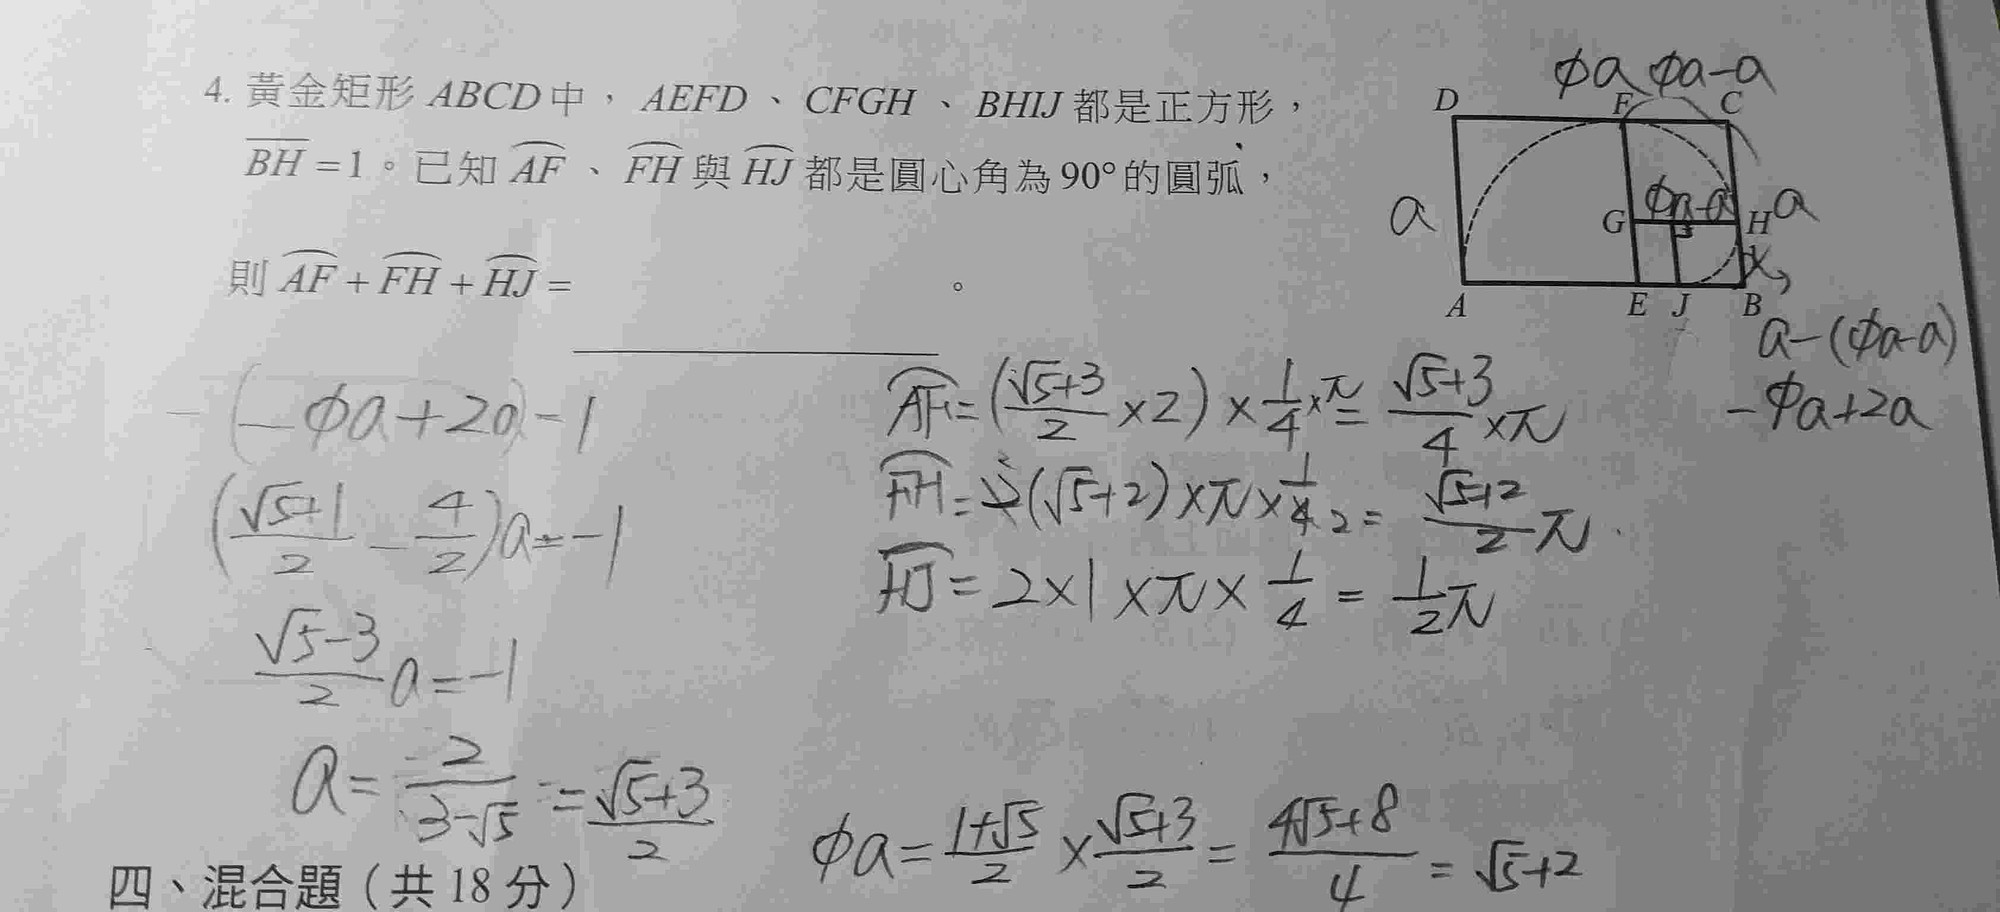 4. 黃金矩形 ABCD 中，AEFD、CFGH、BHIJ 都是正方形，
BH = 1。已知 AF、FH 與 HJ 都是圓心角為 90° 的圓弧，
則 AF + FH + HJ = 。
φa φa-a
D F C
a G φa-a H a
x
A E J B
a-(φa-a)
-φa+2a
-(-φa+2a)-1
(√5+1/2 - 4/2)a=-1
√5-3/2 a=-1
a= 2/3-√5 = √5+3/2
AF=(√5+3/2 ×2)×1/4×π= √5+3/4 ×π
FH= (√5+2)×π×1/4 2= √5+2/2 π
HJ = 2×1×π× 1/4 = 1/2 π
φa= 1+√5/2 × √5+3/2 = 4√5+8/4 = √5+2
四、混合題（共 18 分）